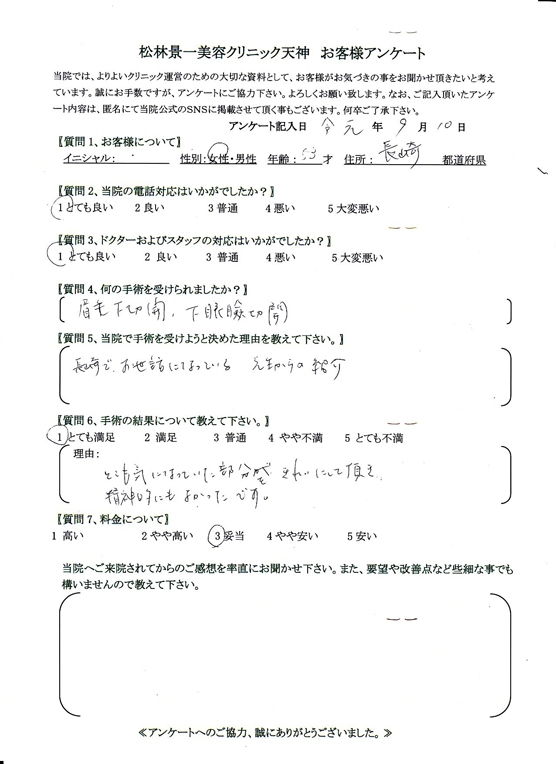 松林景一美容クリニック天神　お客様アンケート
当院では、よりよいクリニック運営のための大切な資料として、お客様がお気づきの事をお聞かせ頂きたいと考え
ています。誠にお手数ですが、アンケートにご協力下さい。よろしくお願い致します。なお、ご記入頂いたアンケ
ート内容は、匿名にて当院公式のSNSに掲載させて頂く事もございます。何卒ご了承下さい。
アンケート記入日　令元　年　9　月　10　日
〖質問1、お客様について〗
イニシャル：　性別：女性・男性　年齢：53　才　住所：　長崎　都道府県
〖質問2、当院の電話対応はいかがでしたか？〗
1とても良い　2良い　3普通　4悪い　5大変悪い
〖質問3、ドクターおよびスタッフの対応はいかがでしたか？〗
1とても良い　2 良い　3 普通　4悪い　5大変悪い
〖質問4、何の手術を受けられましたか？〗
眉毛下切開、下眼瞼切開
〖質問5、当院で手術を受けようと決めた理由を教えて下さい。〗
長崎で、お世話になっている　先生からの紹介
〖質問6、手術の結果について教えて下さい。〗
1とても満足　2 満足　3 普通　4 やや不満　5 とても不満
理由：
とても気になっていた部分を　きれいにして頂き
精神的にもよかったです。
〖質問7、料金について〗
1 高い　2やや高い　3妥当　4やや安い　5安い
当院へご来院されてからのご感想を率直にお聞かせ下さい。また、要望や改善点など些細な事でも
構いませんので教えて下さい。
≪アンケートへのご協力、誠にありがとうございました。≫